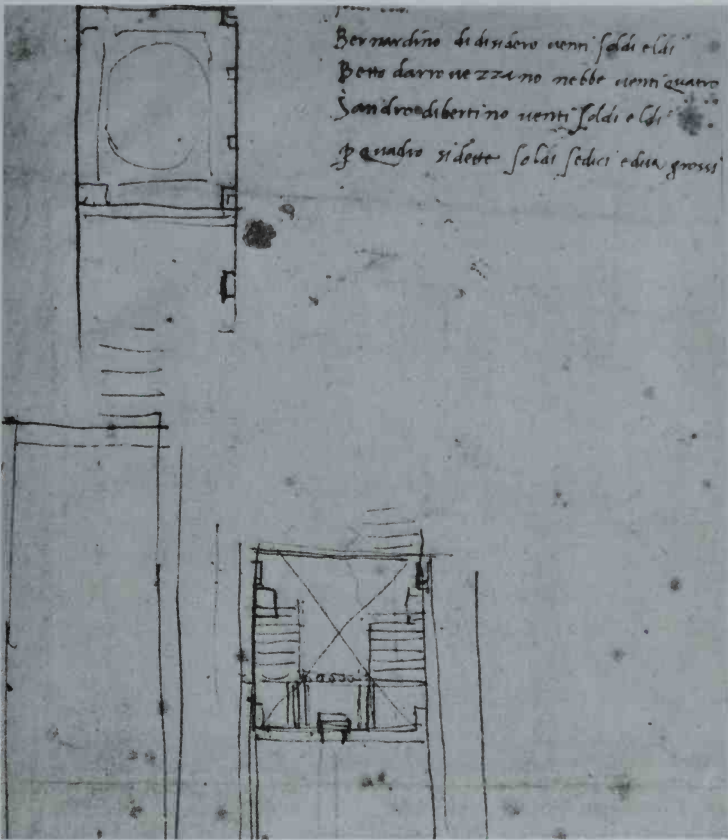 Bernardino di disidero venti soldi eldi
Betto da rrovezzano nebbe venti quatro
Sandro di bertino venti soldi eldi
quadro si dette soldi sedici e dua grossi